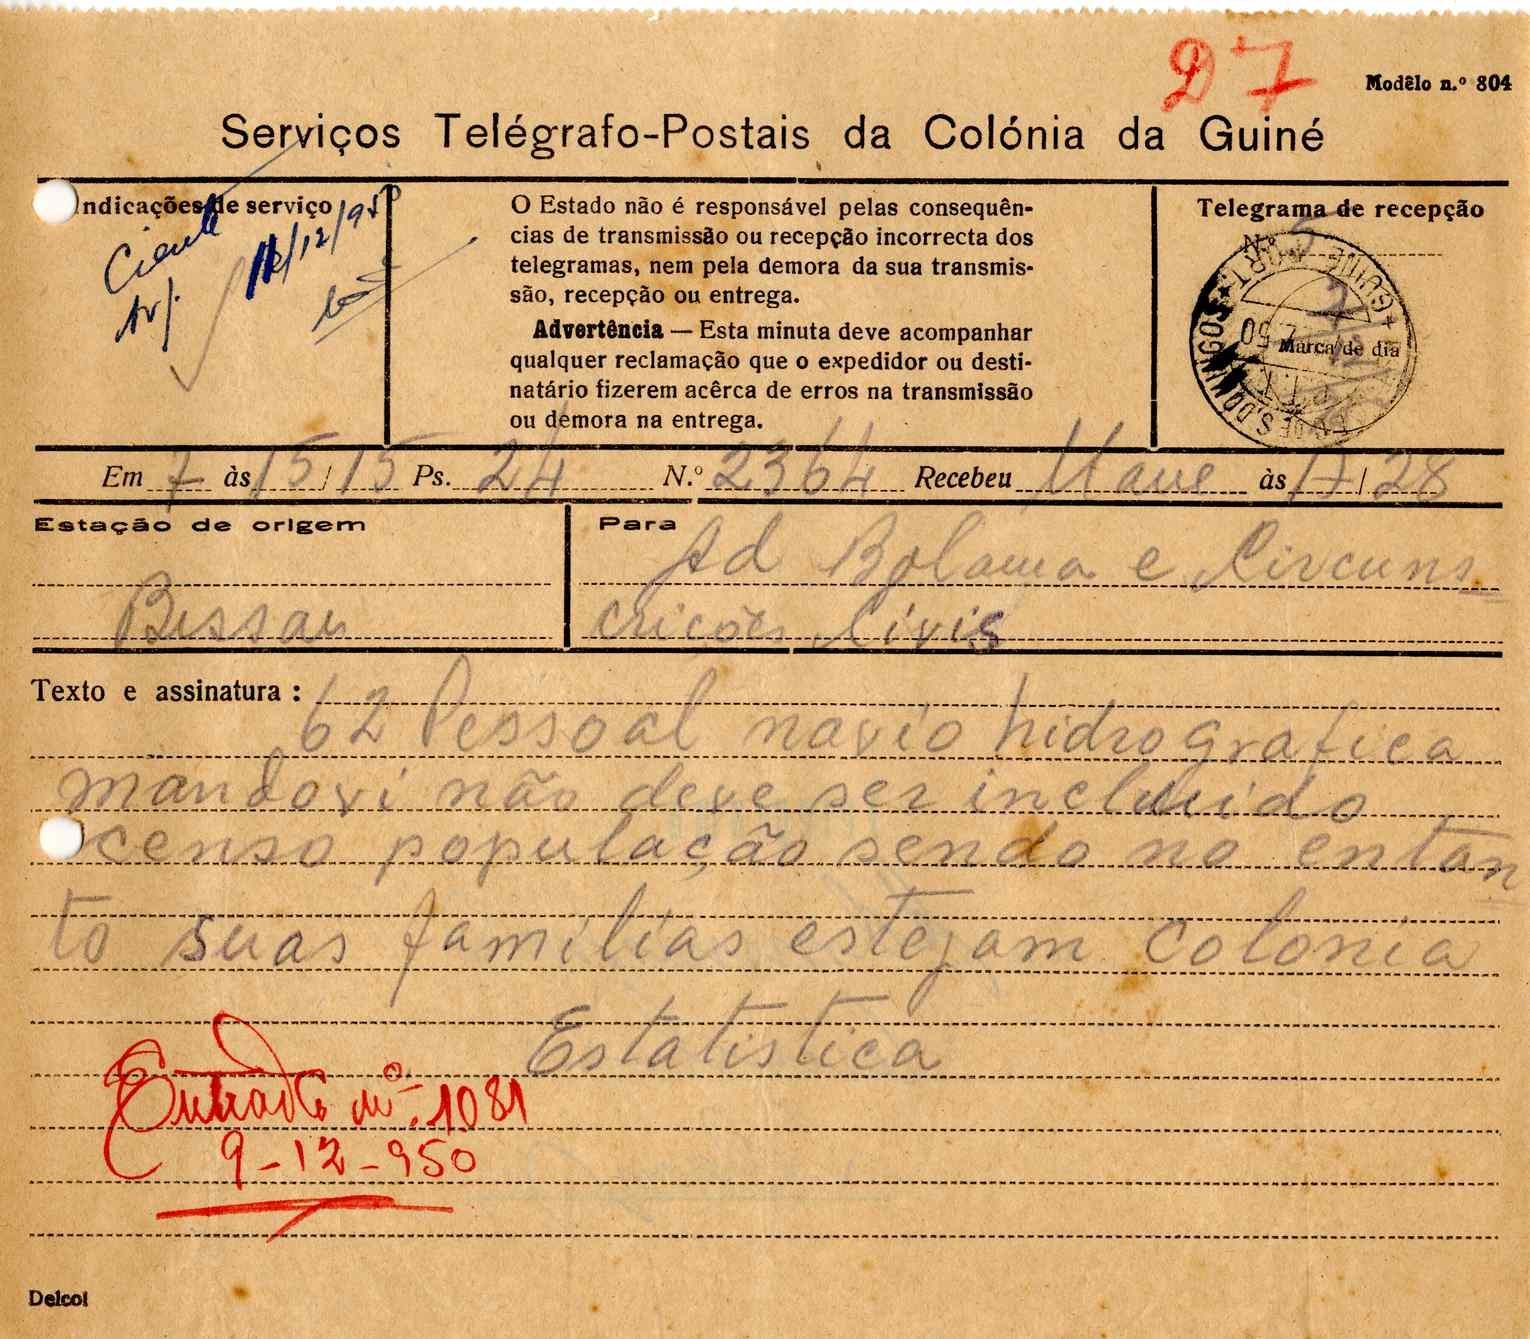 D7
Modêlo n.º 804
Serviços Telégrafo-Postais da Colónia da Guiné
Indicações de serviço
Ciente
Arj.
12/12/950
O Estado não é responsável pelas consequên-
cias de transmissão ou recepção incorrecta dos
telegramas, nem pela demora da sua transmis-
são, recepção ou entrega.
Advertência — Esta minuta deve acompanhar
qualquer reclamação que o expedidor ou desti-
natário fizerem acêrca de erros na transmissão
ou demora na entrega.
Telegrama de recepção
N.º 5
GUINÉ PORT.
S. DOMINGOS
50
Marca de dia
Em 7 às 15/15 Ps. 24 N.º 2364 Recebeu às 17/28
Estação de origem
Bissau
Para
Ad Bolama e Circuns
crições Civis
Texto e assinatura :
62 Pessoal navio hidrografica
mandovi não deve ser incluido
censo população sendo no entan
to suas familias estejam colonia
Estatistica
Entrada nº. 1081
9-12-950
Delcol